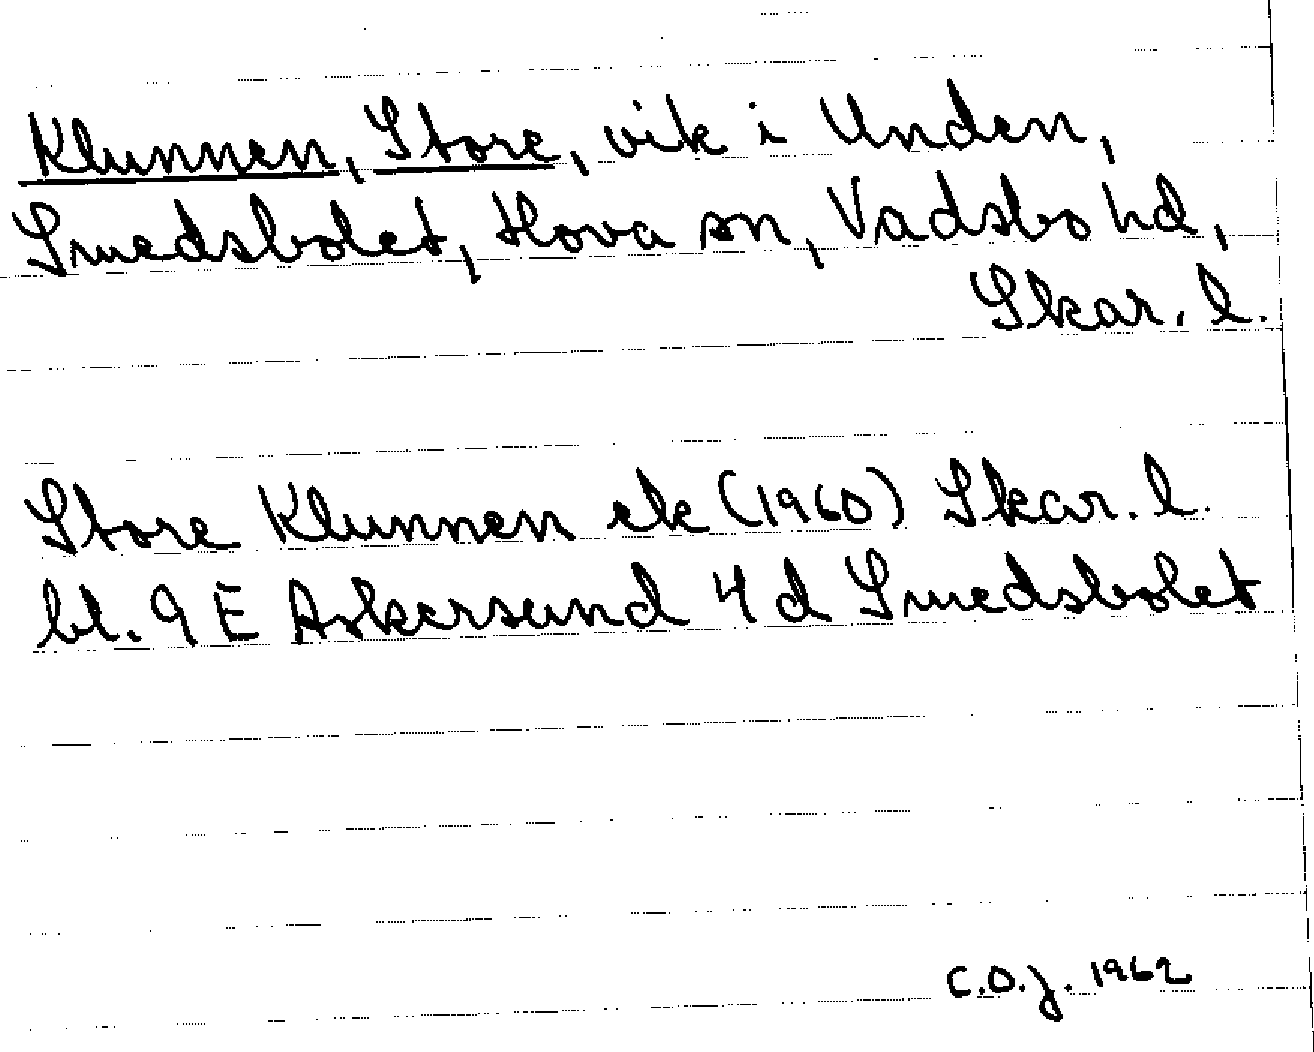 Klunnen, Store, vik i Unden,
Smedsbolet, Hova sn, Vadsbo hd,
Skar. l.
Store Klunnen ek (1960) Skar. l.
bl. 9 E Askersund 4 d Smedsbolet
C.O.J. 1962